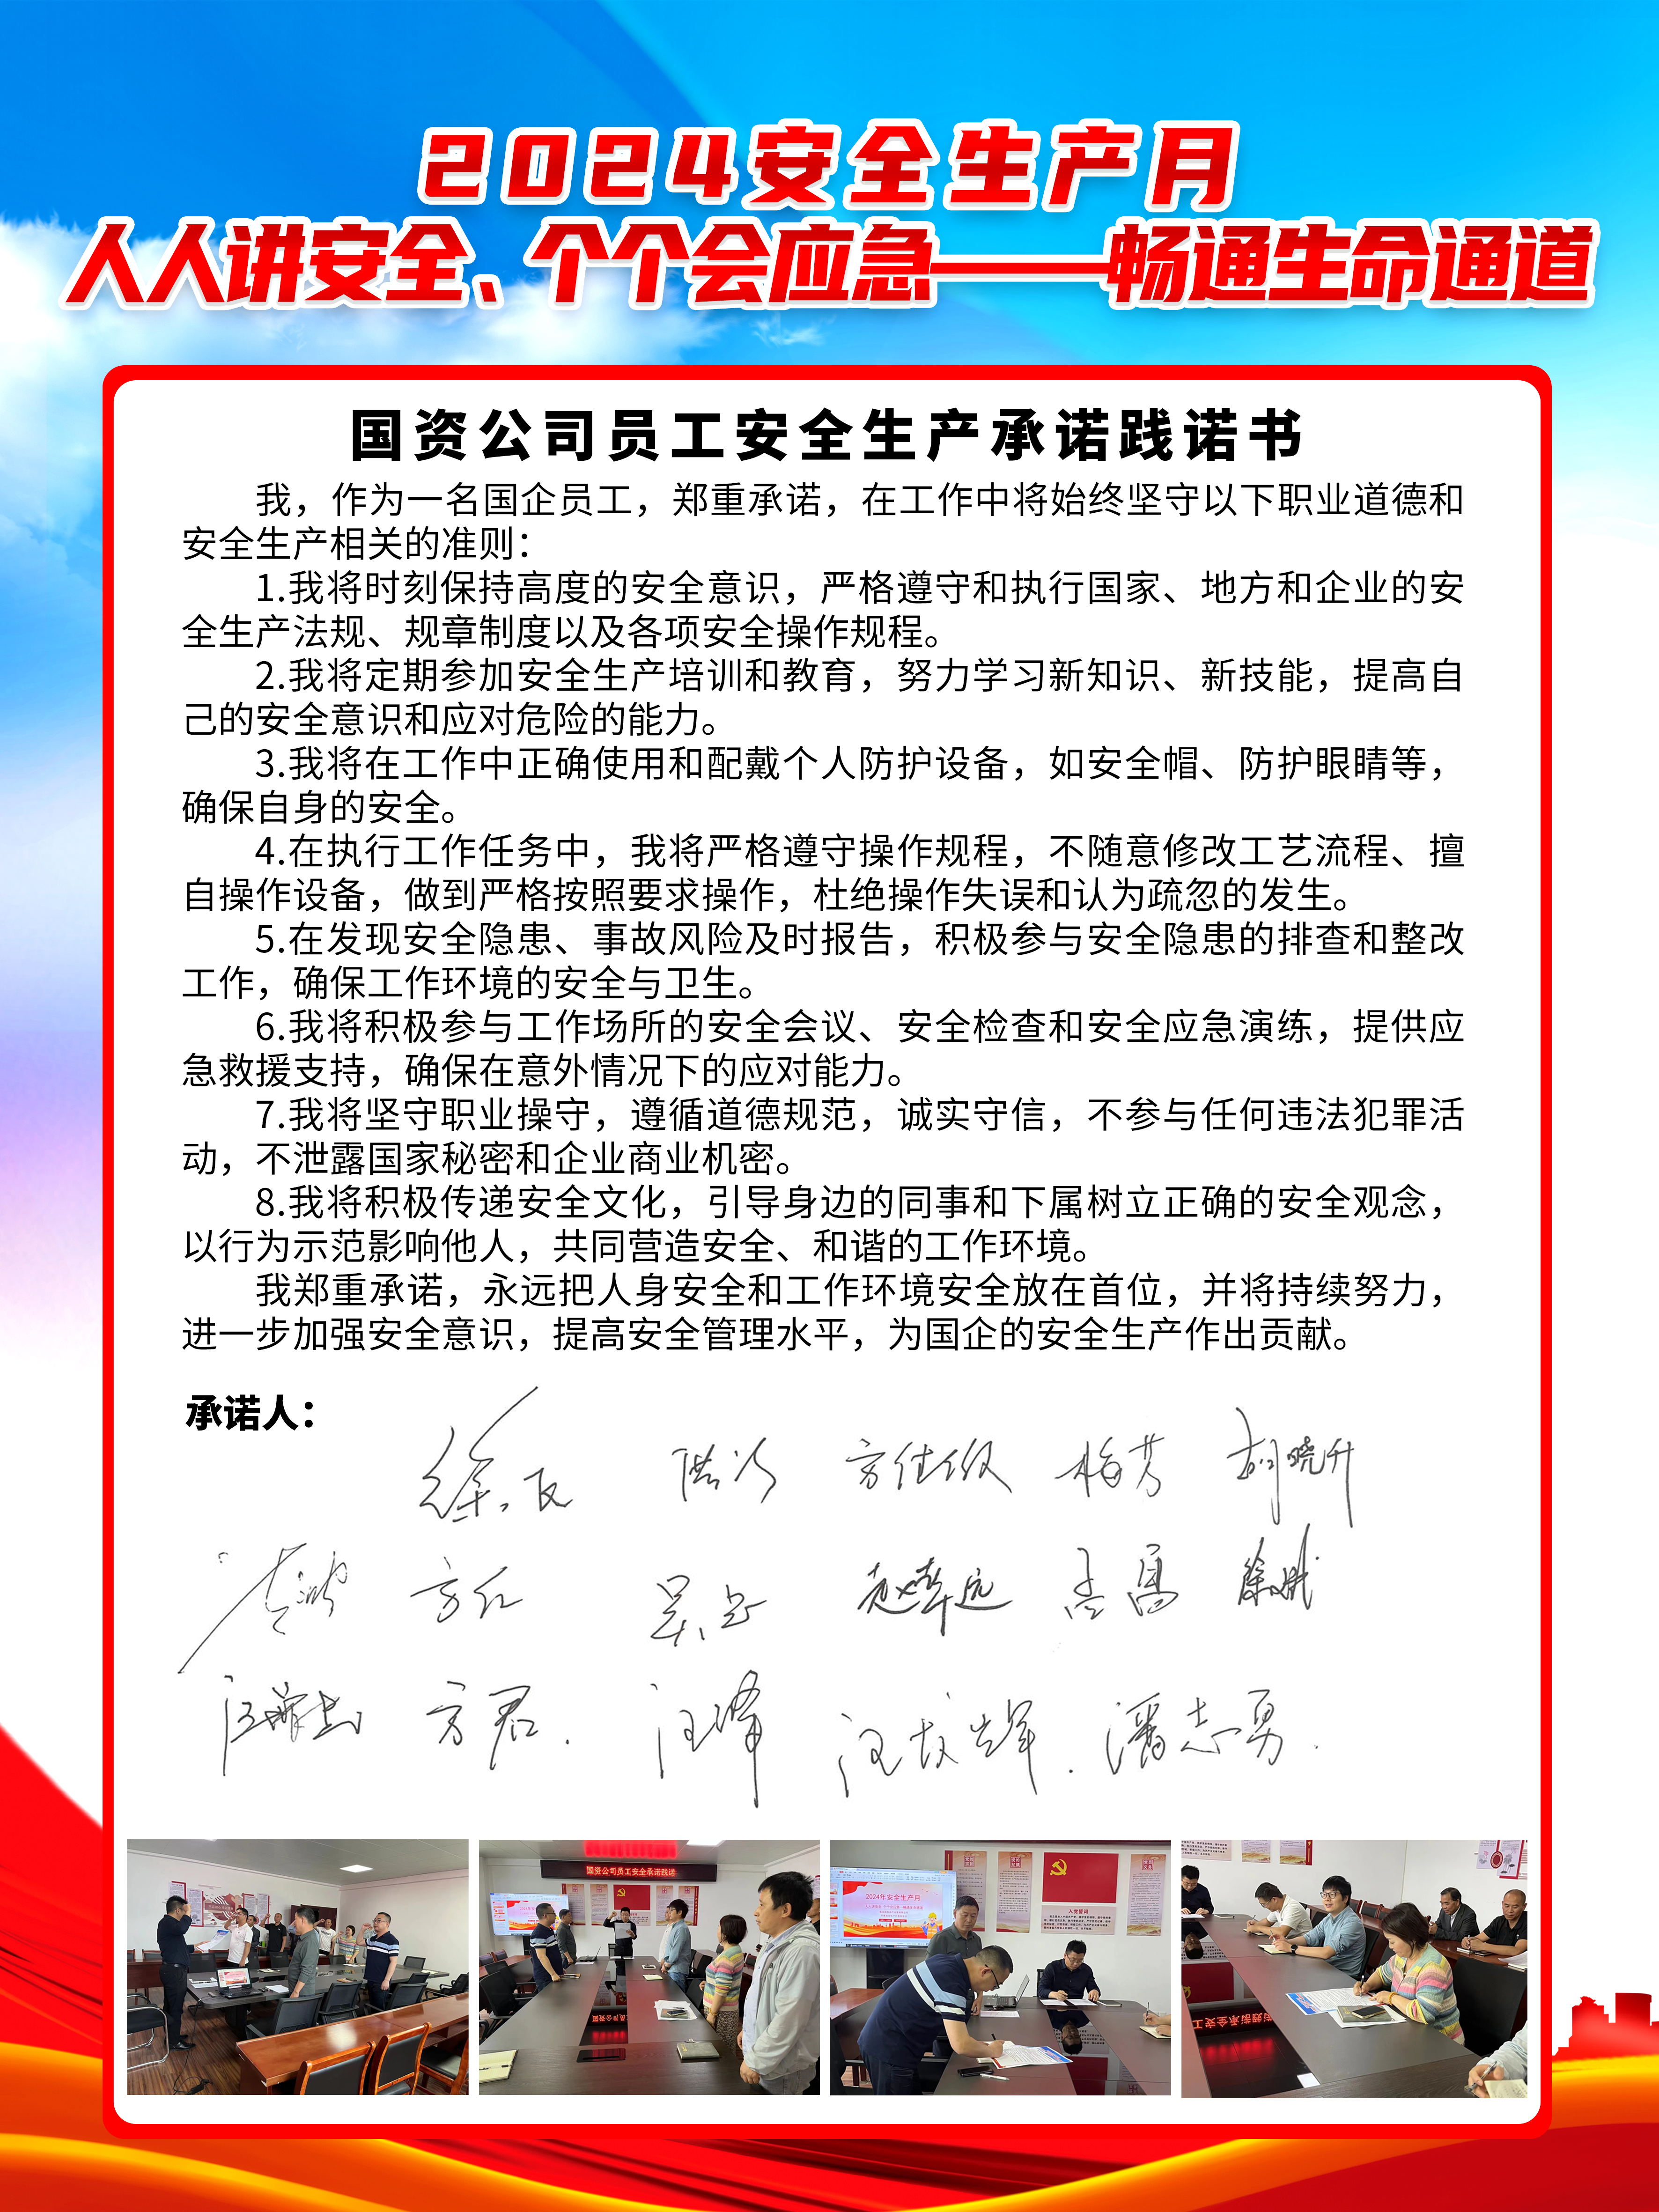 2024安全生产月
人人讲安全、个个会应急——畅通生命通道
国资公司员工安全生产承诺践诺书
我，作为一名国企员工，郑重承诺，在工作中将始终坚守以下职业道德和
安全生产相关的准则：
1.我将时刻保持高度的安全意识，严格遵守和执行国家、地方和企业的安
全生产法规、规章制度以及各项安全操作规程。
2.我将定期参加安全生产培训和教育，努力学习新知识、新技能，提高自
己的安全意识和应对危险的能力。
3.我将在工作中正确使用和配戴个人防护设备，如安全帽、防护眼睛等，
确保自身的安全。
4.在执行工作任务中，我将严格遵守操作规程，不随意修改工艺流程、擅
自操作设备，做到严格按照要求操作，杜绝操作失误和认为疏忽的发生。
5.在发现安全隐患、事故风险及时报告，积极参与安全隐患的排查和整改
工作，确保工作环境的安全与卫生。
6.我将积极参与工作场所的安全会议、安全检查和安全应急演练，提供应
急救援支持，确保在意外情况下的应对能力。
7.我将坚守职业操守，遵循道德规范，诚实守信，不参与任何违法犯罪活
动，不泄露国家秘密和企业商业机密。
8.我将积极传递安全文化，引导身边的同事和下属树立正确的安全观念，
以行为示范影响他人，共同营造安全、和谐的工作环境。
我郑重承诺，永远把人身安全和工作环境安全放在首位，并将持续努力，
进一步加强安全意识，提高安全管理水平，为国企的安全生产作出贡献。
承诺人：
梅芳 胡晓升
方红 赵华远
方君 汪峰 潘志勇
国资公司员工安全承诺践诺
2024年安全生产月
入党誓词